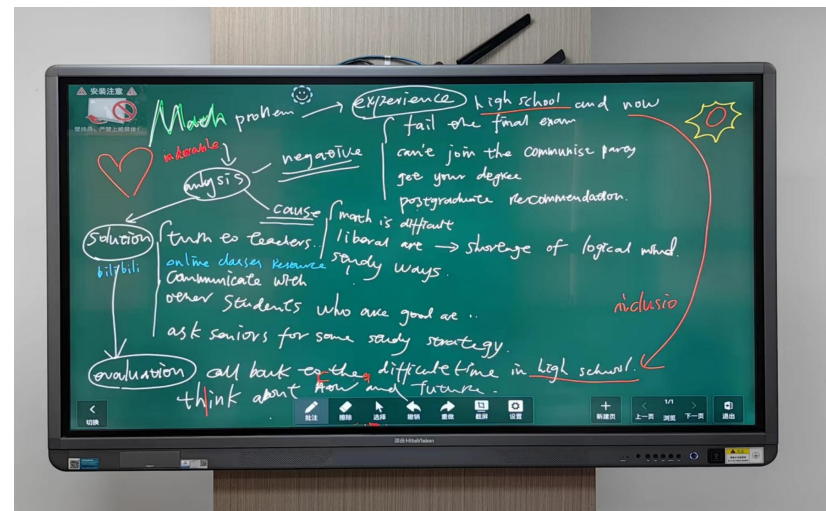 安装注意
Math problem → experience high school and now
fail the final exam
can't join the communist party
get your degree
postgraduate recommendation.
negative
anlysis
cause
math is difficult
liberal art → shortage of logical mind.
study ways.
solution
bilibili
turn to teachers..
online classes resource
communicate with
other students who are good at ..
ask seniors for some study strategy.
evaluation call back to the difficult time in high school.
think about now and future.
切换
批注
擦除
选择
撤销
重做
截屏
设置
新建页
上一页
1/1
浏览
下一页
退出
HiteVision